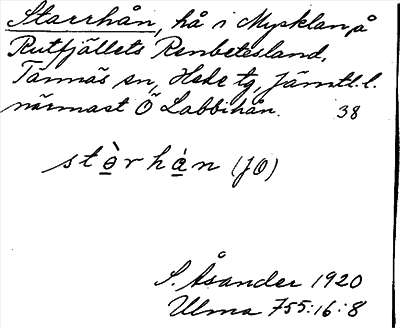 Starrhån, hå i Mysklan på
Rutfjällets Renbetesland,
Tännäs sn, Hede tg, Jämtl. l.
närmast Ö Labbihån. 38
stə̀rhán (JO)
S. Åsander 1920
Ulma 755:16:8